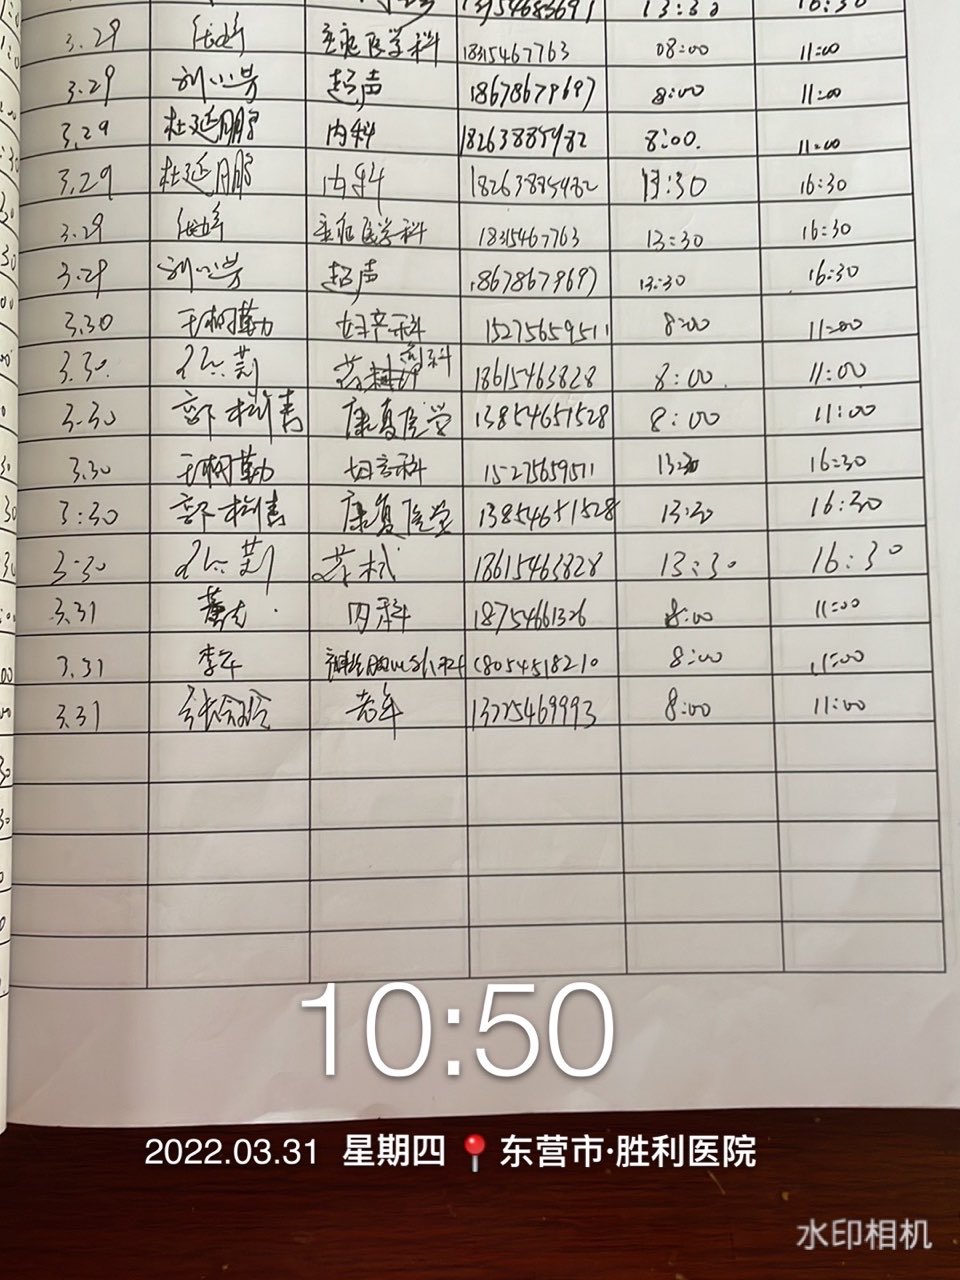 13:30 16:30
3.29 重症医学科 18315467763 08:00 11:00
3.29 刘小芳 超声 18678679697 8:00 11:00
3.29 杜延鹏 内科 18263885982 8:00. 11:00
3.29 杜延鹏 内科 18263885982 13:30 16:30
3.29 重症医学科 18315467763 13:30 16:30
3.29 刘小芳 超声 18678679697 13:30 16:30
3.30 王树勤 妇产科 15275659511 8:00 11:00
3.30. 18615463828 8:00. 11:00
3.30 康复医学 13854651528 8:00 11:00
3.30 王树勤 妇产科 15275659511 13:30 16:30
3:30 康复医学 13854651528 13:30 16:30
3.30 18615463828 13:30 16:30
3.31 内科 18754661326 8:00 11:00
3.31 李军 18054518210 8:00 11:00
3.31 老年 13225469993 8:00 11:00
10:50
2022.03.31 星期四 东营市·胜利医院
水印相机